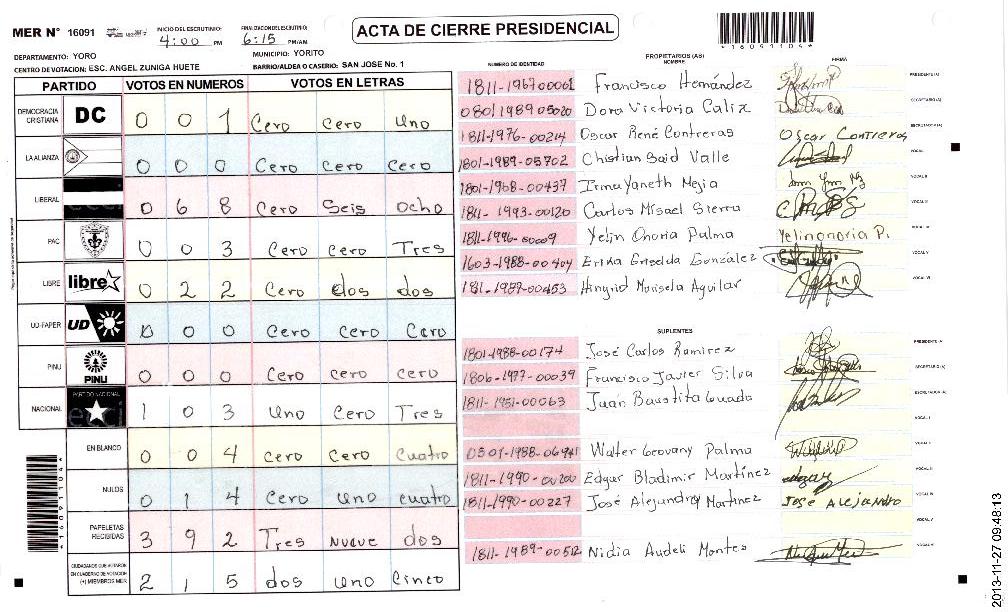 MER N° 16091
INICIO DEL ESCRUTINIO: 4:00 PM
FINALIZACION DEL ESCRUTINIO: 6:15 PM/AM
ACTA DE CIERRE PRESIDENCIAL
*16091104*
DEPARTAMENTO: YORO
MUNICIPIO: YORITO
CENTRO DE VOTACION: ESC. ANGEL ZUNIGA HUETE
BARRIO/ALDEA O CASERIO: SAN JOSE No. 1
PARTIDO VOTOS EN NUMEROS VOTOS EN LETRAS
DEMOCRACIA CRISTIANA DC 0 0 1 Cero Cero Uno
LA ALIANZA 0 0 0 Cero Cero Cero
LIBERAL 0 6 8 Cero Seis Ocho
PAC 0 0 3 Cero Cero Tres
LIBRE libre 0 2 2 Cero dos dos
UD-FAPER UD 0 0 0 Cero Cero Cero
PINU PINU 0 0 0 Cero Cero Cero
NACIONAL PARTIDO NACIONAL 1 0 3 Uno Cero Tres
EN BLANCO 0 0 4 Cero Cero Cuatro
NULOS 0 1 4 Cero Uno Cuatro
PAPELETAS RECIBIDAS 3 9 2 Tres Nueve dos
CIUDADANOS QUE VOTARON EN CUADERNO DE VOTACION (+) MIEMBROS MER 2 1 5 dos Uno Cinco
*16091104*
PROPIETARIOS (AS)
NUMERO DE IDENTIDAD NOMBRE FIRMA
1811-196700061 Francisco Hernández PRESIDENTE (A)
0801198905020 Dora Victoria Calix SECRETARIO (A)
1811-1976-00214 Oscar René Contreras Oscar Contreras
1801-1989-05702 Christian Said Valle VOCAL I
1801-1968-00437 Irma Yaneth Mejia VOCAL II
1811-1993-00120 Carlos Misael Sierra VOCAL III
1811-1996-00009 Yelin Onoria Palma Yelinonoria P.
1603-1988-00404 Erika Griselda González VOCAL V
181-1987-00453 Hingrid Marisela Aguilar
SUPLENTES
1801-1988-00174 José Carlos Ramirez PRESIDENTE (A)
1806-1977-00039 Francisco Javier Silva SECRETARIO (A)
1811-1951-00063 Juan Bautista
VOCAL I
0501-1988-06941 Walter Geovany Palma
1811-1990-00200 Edgar Bladimir Martínez
1811-1990-00227 José Alejandro Martinez José Alejandro
1811-1989-00512 Nidia Audeli Montes
2013-11-27 09:48:13